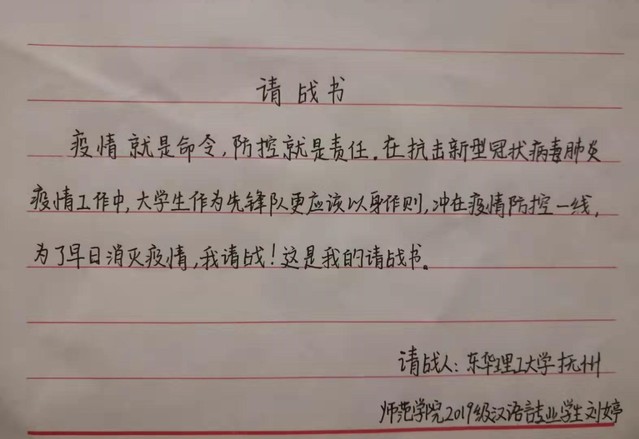 请战书
疫情就是命令,防控就是责任。在抗击新型冠状病毒肺炎
疫情工作中,大学生作为先锋队更应该以身作则,冲在疫情防控一线,
为了早日消灭疫情,我请战!这是我的请战书。
请战人:东华理工大学抚州
师范学院2019级汉语言专业学生刘婷